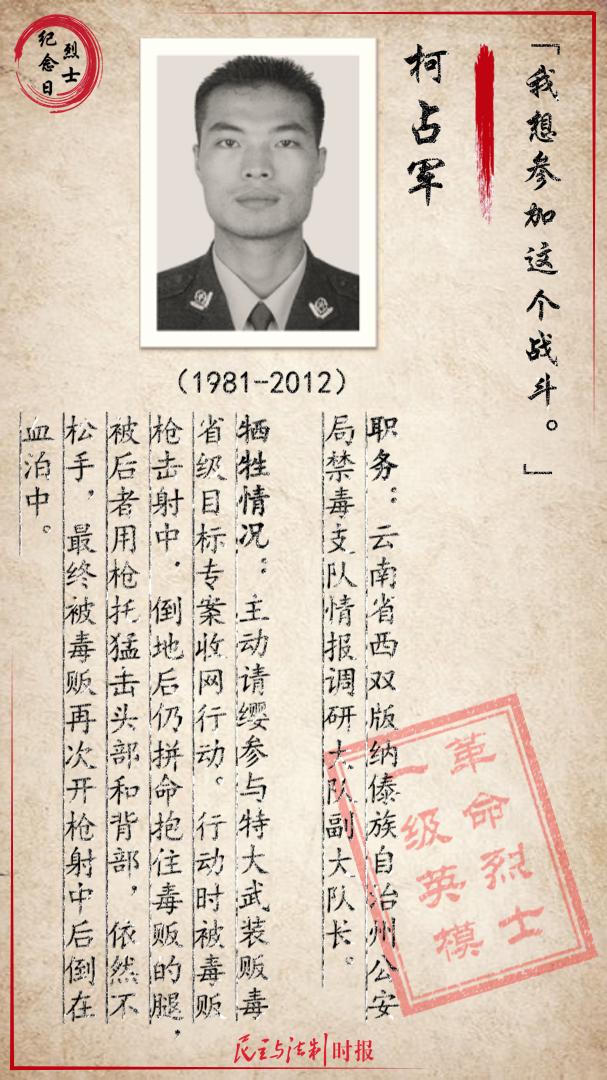 烈士
纪念日
「我想参加这个战斗。」
柯占军
（1981--2012）
职务：云南省西双版纳傣族自治州公安
局禁毒支队情报调研大队副大队长。
牺牲情况：主动请缨参与特大武装贩毒
省级目标专案收网行动。行动时被毒贩
枪击射中，倒地后仍拼命抱住毒贩的腿，
被后者用枪托猛击头部和背部，依然不
松手，最终被毒贩再次开枪射中后倒在
血泊中。
革命烈士
一级英模
民主与法制时报